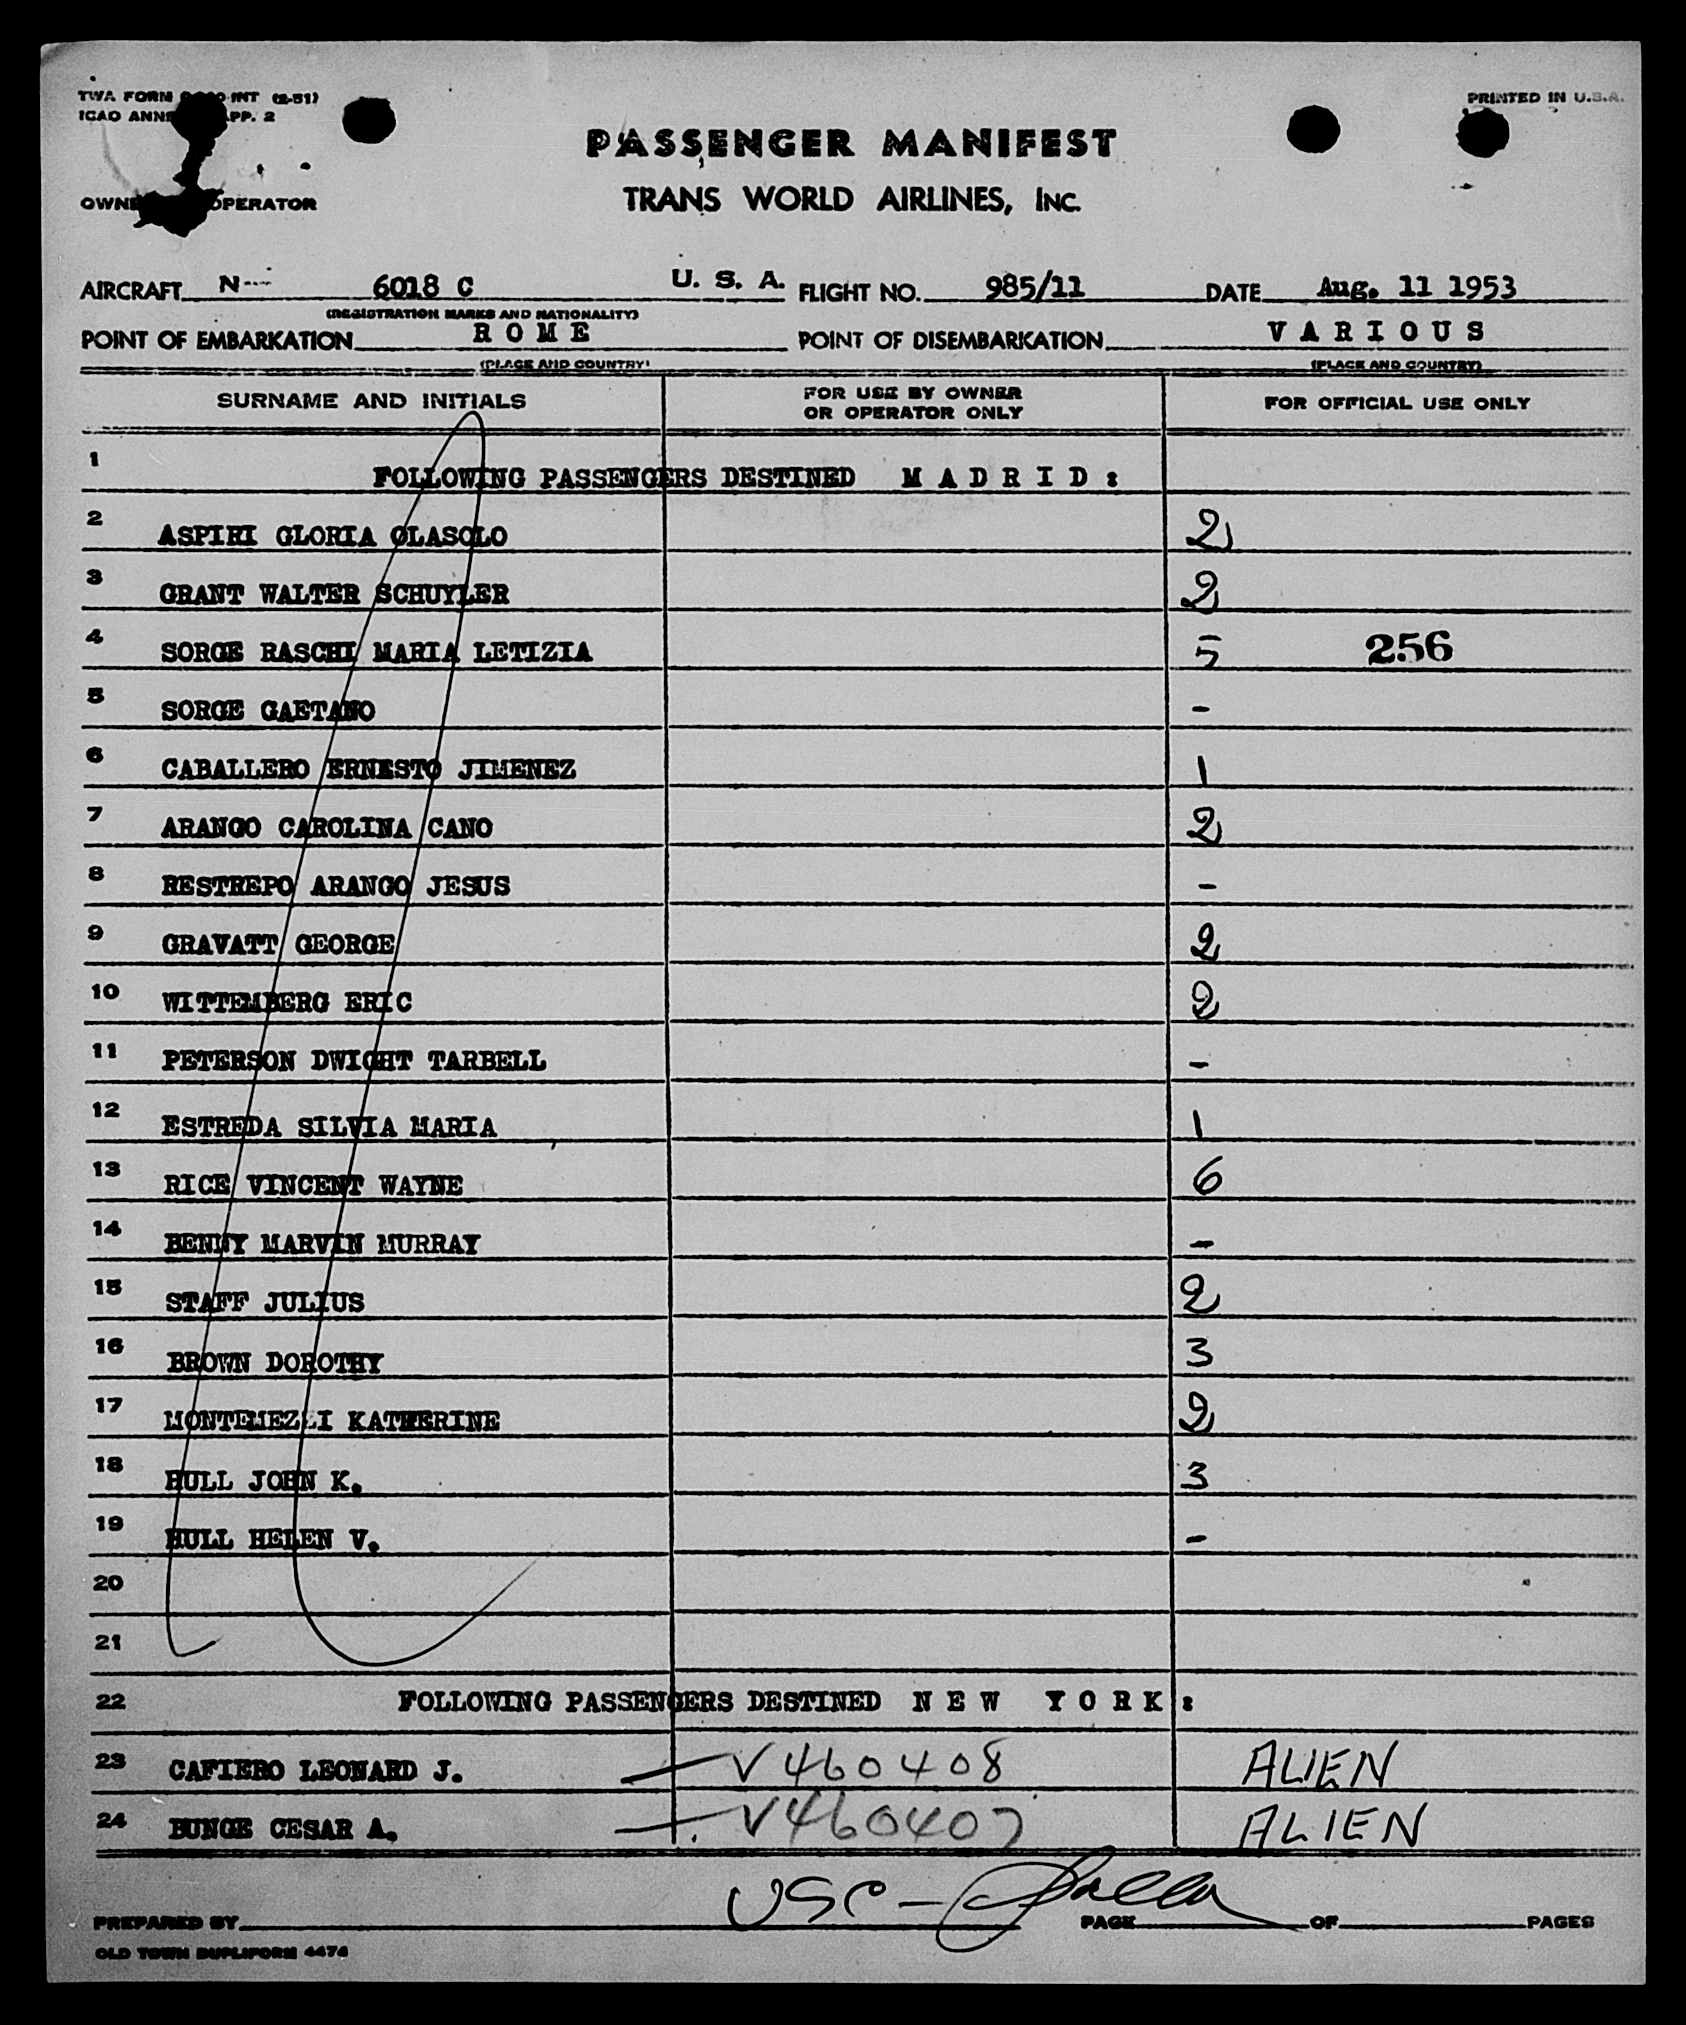 TWA FORM INT (2-51)
ICAO APP. 2
PRINTED IN U.S.A.
PASSENGER MANIFEST
TRANS WORLD AIRLINES, INC.
OPERATOR
AIRCRAFT N--- 6018 C U. S. A. FLIGHT NO. 985/11 DATE Aug. 11 1953
(REGISTRATION MARKS AND NATIONALITY)
POINT OF EMBARKATION R O M E POINT OF DISEMBARKATION V A R I O U S
(PLACE AND COUNTRY) (PLACE AND COUNTRY)
SURNAME AND INITIALS FOR USE BY OWNER OR OPERATOR ONLY FOR OFFICIAL USE ONLY
1 FOLLOWING PASSENGERS DESTINED M A D R I D :
2 ASPIRI GLORIA OLASOLO 2
3 GRANT WALTER SCHUYLER 2
4 SORGE RASCHI MARIA LETIZIA 5 256
5 SORGE GAETANO -
6 CABALLERO ERNESTO JIMENEZ 1
7 ARANGO CAROLINA CANO 2
8 RESTREPO ARANGO JESUS -
9 GRAVATT GEORGE 2
10 WITTEMBERG ERIC 2
11 PETERSON DWIGHT TARBELL -
12 ESTREDA SILVIA MARIA 1
13 RICE VINCENT WAYNE 6
14 BENNY MARVIN MURRAY -
15 STAFF JULIUS 2
16 BROWN DOROTHY 3
17 MONTEMEZZI KATHERINE 2
18 HULL JOHN K. 3
19 HULL HELEN V. -
20
21
22 FOLLOWING PASSENGERS DESTINED N E W Y O R K :
23 CAFIERO LEONARD J. — V460408 ALIEN
24 BUNGE CESAR A. — V460407 ALIEN
USC -
PREPARED BY PAGE OF PAGES
OLD TOWN DUPLIFORM 4474